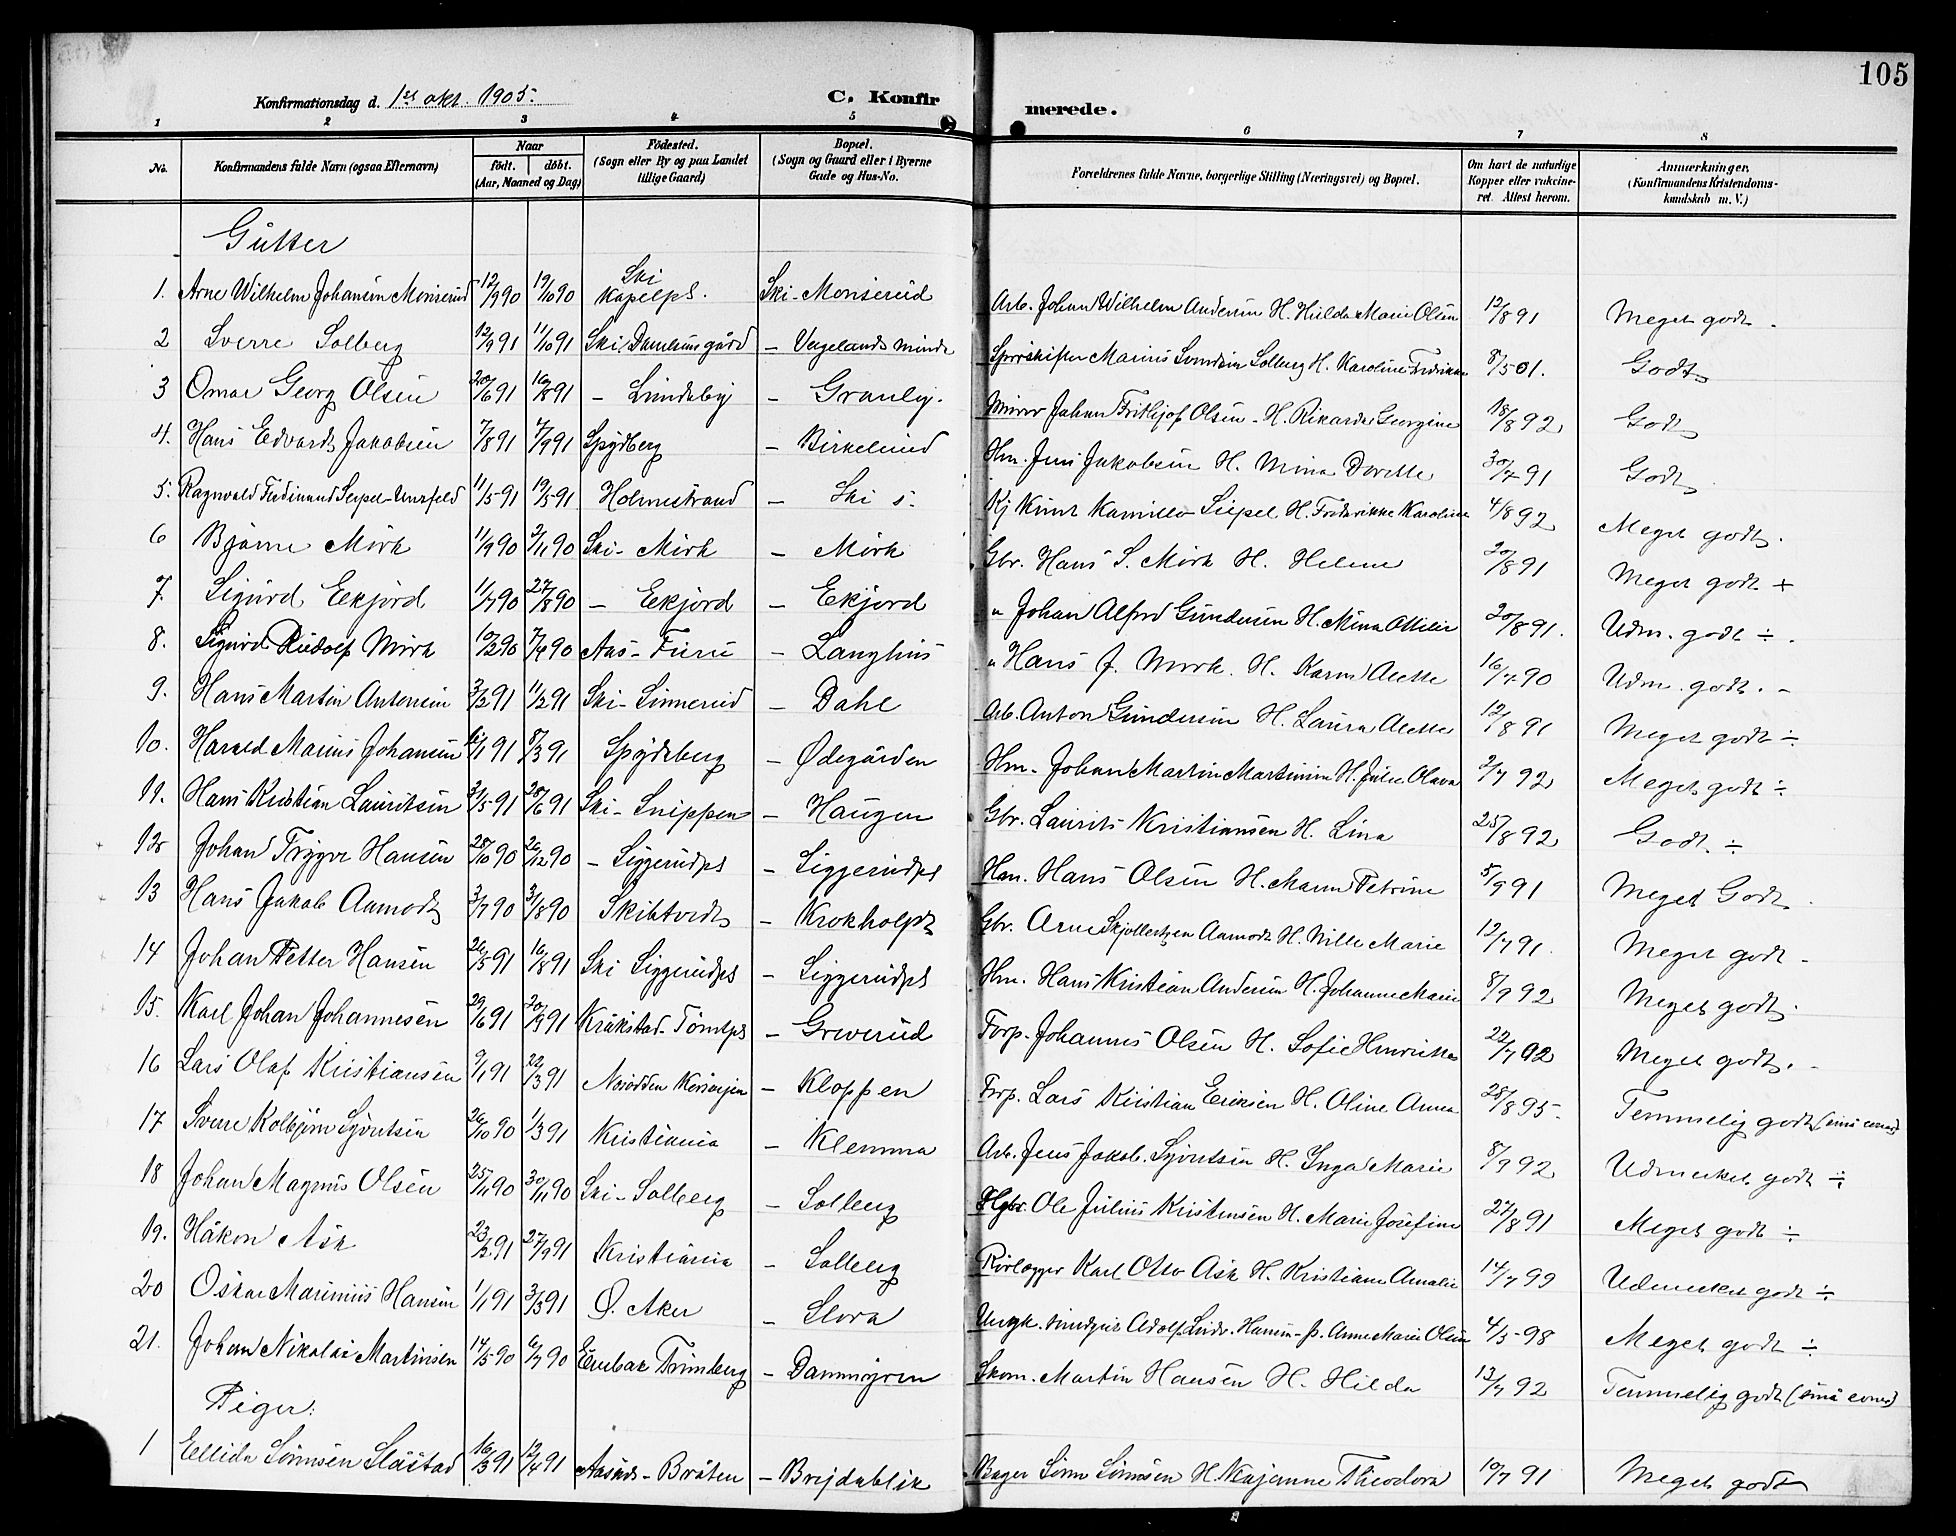 105
Konfirmationsdag d. 1ste okt. 1905.
C. Konfirmerede.
1 2 3 4 5 6 7 8
No. Konfirmandens fulde Navn (ogsaa Efternavn) Naar födt. döbt. (Aar, Maaned og Dag) Födested. (Sogn eller By og paa Landet tillige Gaard) Bopæl. (Sogn og Gaard eller i Byerne Gade og Hus-No. Forældrenes fulde Navne, borgerlige Stilling (Næringsvei) og Bopæl. Om havt de naturlige Kopper eller vakcineret. Attest herom. Anmærkninger. (Konfirmandens Kristendomskundskab m. V.)
Gutter
1. Arne Wilhelm Johansen Monserud 12/9 90 19/10 90 Ski Kapelpl. Ski - Monserud Arb. Johan Wilhelm Andersen H. Hilda Marie Olsen 12/8 91 Meget godt.
2 Sverre Solberg 12/9 91 11/10 91 Ski - Vegelands minde Sporskifter Marius Svendsen Solberg H. Karoline Fredrikke 8/5 01. Godt
3 Omar Georg Olsen 20/6 91 16/8 91 - Lundeby - Granly. Murer Johan Frithjof Olsen - H. Rikarda Georgine 18/8 92 Godt
4. Hans Edvard Jakobsen 7/8 91 4/9 91 Spydberg - Birkelund Hm. Jens Jakobsen H. Mina Dorette 30/7 91 Godt
5. Ragnvald Ferdinand 11/5 91 19/5 91 Holmestrand - Ski s. Kj Knut Kamillo Siepel H. Fredrikke Karoline 4/8 92 Meget godt.
6 Bjarne Mörk 11/9 90 2/11 90 Ski - Mörk - Mörk Gbr. Hans S. Mörk H. Helene 20/8 91 Meget godt +
7. Sigurd Eekjord 11/7 90 27/8 90 - Eekjord - Ekjord " Johan Alfred Gundersen H. Mina Ottilie 20/8 91. Udm. godt ÷.
8. Sigurd Rudolf Mörk 10/2 90 7/4 90 Aas - Furu - Langhus " Hans J. Mörk. H. Karen Alette 16/7 90 Udm. godt. -
9. Hans Martin Antonsen 3/2 91 11/2 91 Ski - Sinnerud - Dahl Arb. Anton Gundersen H. Laura Alette 12/8 91 Meget godt ÷
10. Harald Marius Johansen 91 8/3 91 Spydeberg - Ødegården Hm - Johan Martin Martinsen H. Julie Olava 2/7 92 Meget godt ÷
11. Hans Kristian Lauritsen 31/5 91 28/6 91 Ski - Snippen - Haugen Gbr. Laurits Kristiansen H. Lina 25/8 92 Godt. ÷
12 Johan Trygve Hansen 28/10 90 26/12 90 - Siggerudpl - Siggerudpl Hm. Hans Olsen H. Maren Petrine 5/9 91 Meget Godt.
13 Hans Jakob Aamodt 3/7 90 3/8 90 Skibtvedt - Krokholpl Gbr. Arne Skjollertzen Aamodt H. Nille Marie 12/7 91. Meget godt -
14 Johan Petter Hansen 24/5 91 16/8 91 Ski Siggerudpl - Siggerudpl Hm. Hans Kristian Andersen H. Johanne Marie 8/9 92 Meget godt.
15. Karl Johan Johannesen 29/6 91 20/9 91 Kråkstad - Tomtpl - Greverud Forp. Johannes Olsen H. Sofie Henriette 22/7 92 Meget godt.
16 Lars Olaf Kristiansen 9/1 91 22/3 91 Nesodden - Kloppen Forp. Lars Kristian Eriksen H. Oline Anna 28/8 95. Temmelig godt (små evner)
17 Sverre Kolbjörn Syvertsen 26/10 90 1/3 91 Kristiania - Klemma Arb. Jens Jakob Syvertsen H. Inga Marie 8/9 92 Udmerket godt ÷
18 Johan Magnus Olsen 25/11 90 30/11 90 Ski - Solberg - Solberg Hgbr. Ole Julius Kristensen H. Marie Josefine 27/8 91 Meget godt ÷
19. Håkon Ask 23/2 91 27/9 91 Kristiania - Solberg Rörlægger Karl Otto Ask H. Kristiane Amalie 14/7 99 Udmerket godt ÷
20 Oskar Marinius Hansen 1/1 91 3/3 91 Ö. Aker - Slora Adolf Hansen - p. Anne Marie Olsen 4/5 98 Meget godt ÷
21. Johan Nikolai Martinsen 14/5 90 6/7 90 Enebak - Dammyren Skom. Martin Hansen H. Hilda 13/7 92 Temmelig godt (små evner)
Piger:
1 Ellida Sörensen Slåstad 16/3 91 12/4 91 Aas - Bråten - Brejdablik Bager Sören Sörensen H. Kajanne Theodora 10/7 91 Meget godt